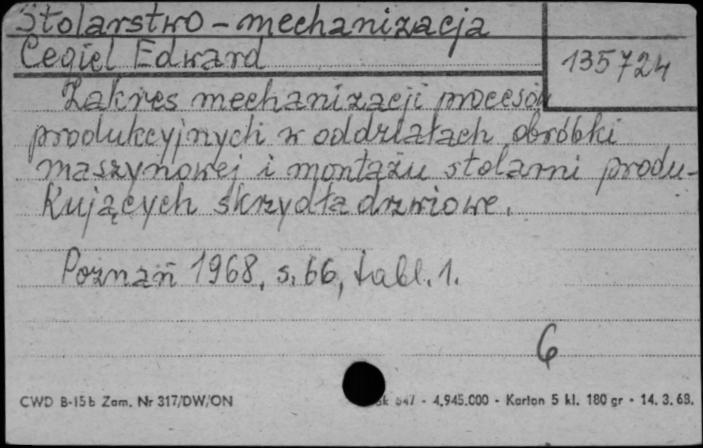 Stolarstwo - mechanizacja
Cegieł Edward
135724
Zakres mechanizacji procesów
produkcyjnych w oddziałach obróbki
maszynowej i montażu stolarni produ-
kujących skrzydła drzwiowe.
Poznań 1968, s. 66, tabl. 1.
6
CWD B-15b Zam. Nr 317/DW/ON
647 - 4.945.000 - Karton 5 kl. 180 gr - 14. 3. 68.